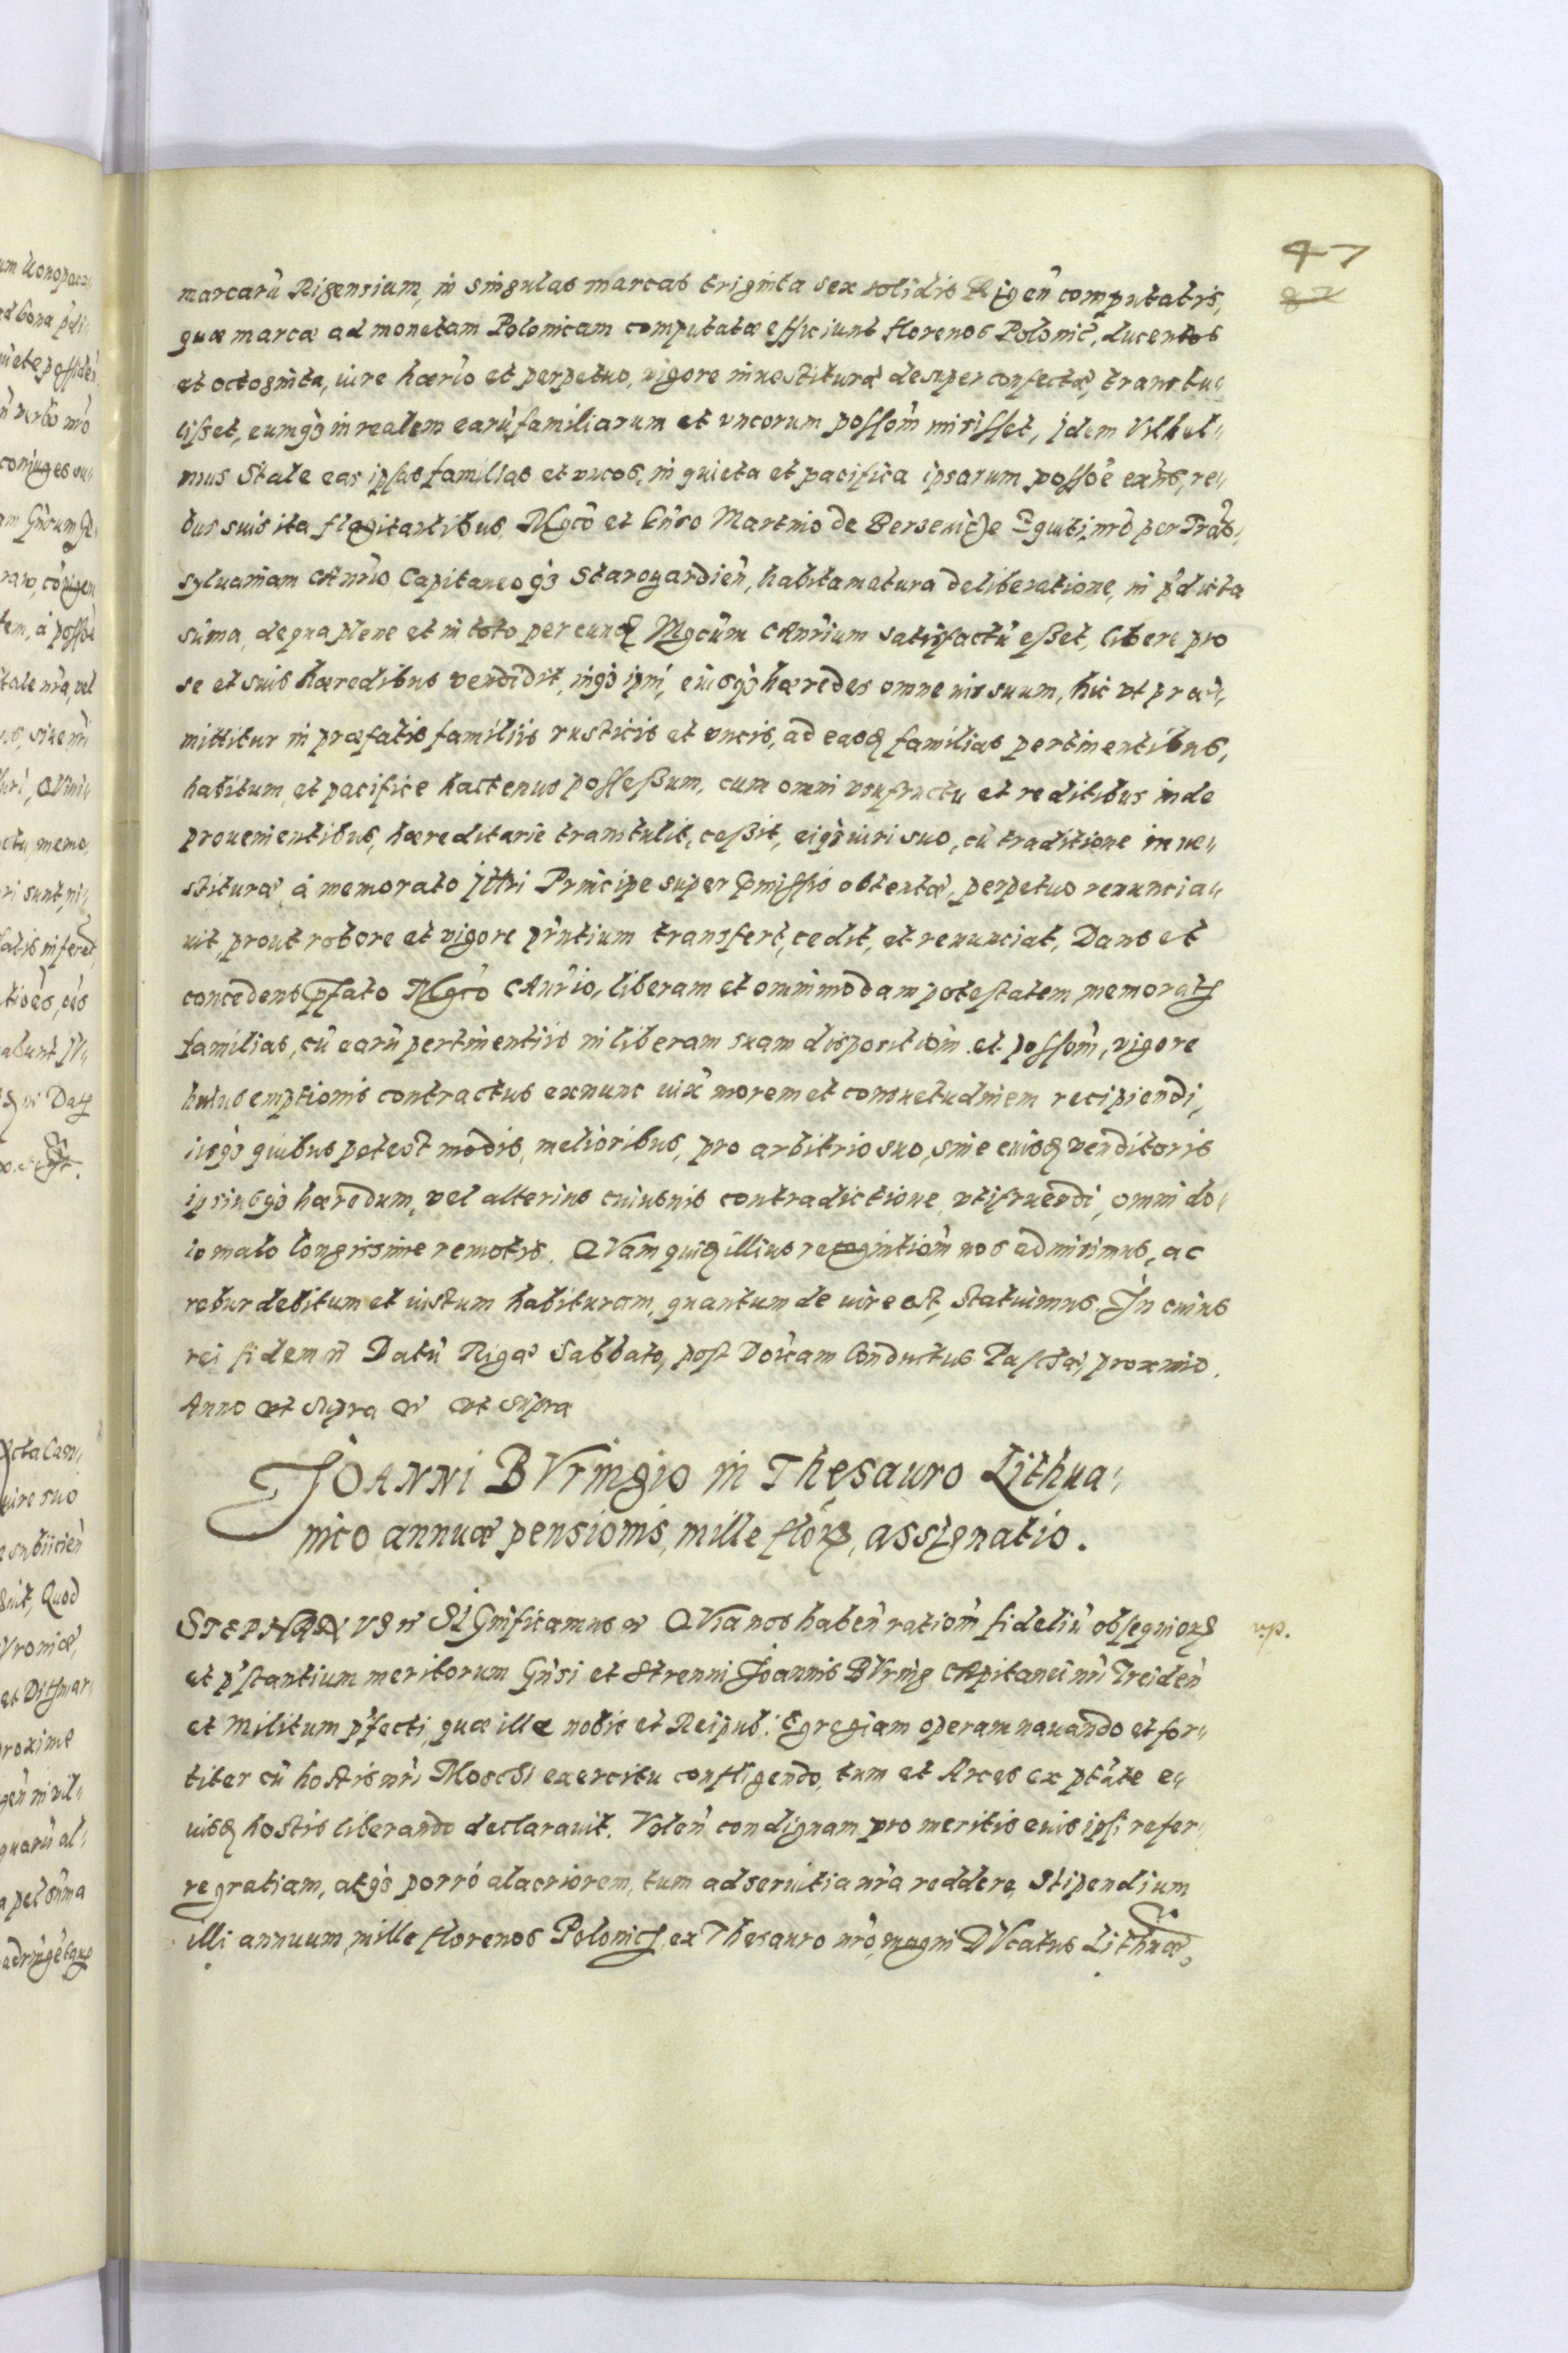 47
marcarū Rigensium, in singulas marcas triginta sex solidis Rigen̄ computatis,
quæ marcæ ad monetam Polonicam computatæ efficiunt florenos Polonic̄, ducentos
et octoginta, iure hær̄io et perpetuo, vigore inuestituræ desuper confectæ, transtu„
lisset, eumq̨ in realem earū familiarum et vncorum possom̄ misisset, idem Vilhel„
mus Stale eas ipsas familias et vncos, in quieta et pacifica ipsarum possoē exn̄s, re„
bus suis ita flagitantibus, Mgco̅ et Gn̄so Martino de Berseuicze Equiti, nr̄o per Trās„
syluaniam CAnr̄io Capitaneoq̨ Starogardien̄, habita matura deliberatione, in p̄dicta
sūma, de qua plene et in toto per eund. Mgcūm CAnr̄ium satisfactū esset, libere pro
se et suis hæredibus vendidit, inq̨ ipm̄, eiusq̨ hæredes omne ius suum, hic vt præ„
mittitur in præfatis familiis rusticis et vncis, ad easd. familias pertinentibus,
habitum et pacifice hactenus possessum, cum omni vsufructu et reditibus inde
prouenientibus, hæreditarie transtulit, cessit, eiq̨ iuri suo, cū traditione inue„
stituræ, à memorato Jll̄tri Principe super p̄missis obtentæ, perpetuo renuncia„
uit, prout robore et vigore pn̄tium transfert, cedit, et renunciat, Dans et
concedens p̄fato Mgco̅ CAnr̄io, liberam et omnimodam potestatem, memorat.
familias, cū earū pertinentiis in liberam suam dispositiom̄ et possom̄, vigore
huius emptionis contractus exnunc iux̄ morem et consuetudinem recipiendi,
iisq̨ quibus potest modis, melioribus, pro arbitrio suo, sine eiusd. venditoris
ipsiusq̨ hæredum, vel alterius cuiusuis contradictione, vtifruendi, omni do„
lo malo longissime remotis. QVam quid. illius recognitiom̄ nos admisimus, ac
robur debitum et iustum habituram, quantum de iure est, statuimus. In cuius
rei fidem &c. Datū Rigæ Sabbato, post Doīcam Conductus Paschæ, proximo.
Anno vt supra &c. vt supra
JOANNI BVringio in Thesauro Lithua„
nico annuæ pensionis, mille flōr., assignatio.
STEPHANVS &c. SIGnificamus &c. QVia nos haben̄ ratiom̄ fideliū obsequior.
et p̄stantium meritorum Gn̄si et Strenui Joannis BVring CApitanei nr̄i Treiden̄
et Militum p̄fecti, quæ ille nobis et Reipub: Egregiam operam nauando et for„
titer cū hostis nr̄i Moschi exercitu confligendo, tum et Arces ex ptāte e„
iusd. hostis liberando declarauit. Volen̄ condignam pro meritis eius ipsi refer„
re gratiam, atq̨ porró alacriorem, tum ad seruitia nr̄a reddere, Stipendium
illi annuum, mille florenos Polonic., ex Thesauro nr̄o, magni DVcatus Lithuæ,